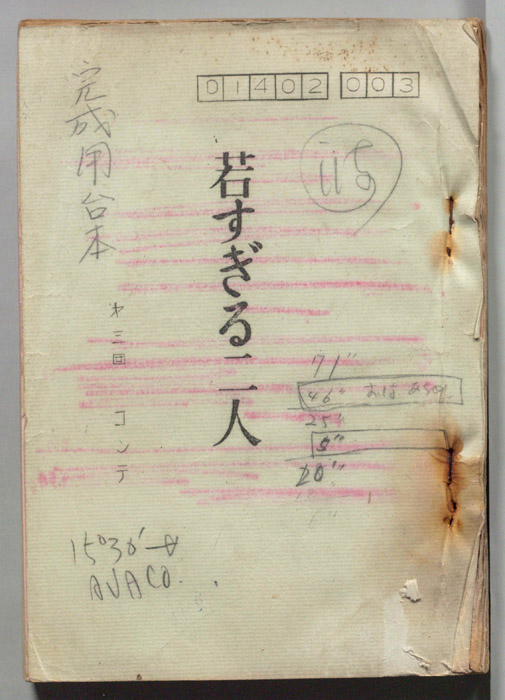 01402 003
完成用台本
若すぎる二人
第三回 コンテ
71"
46"
25"
20"
15°30'
AVACO.